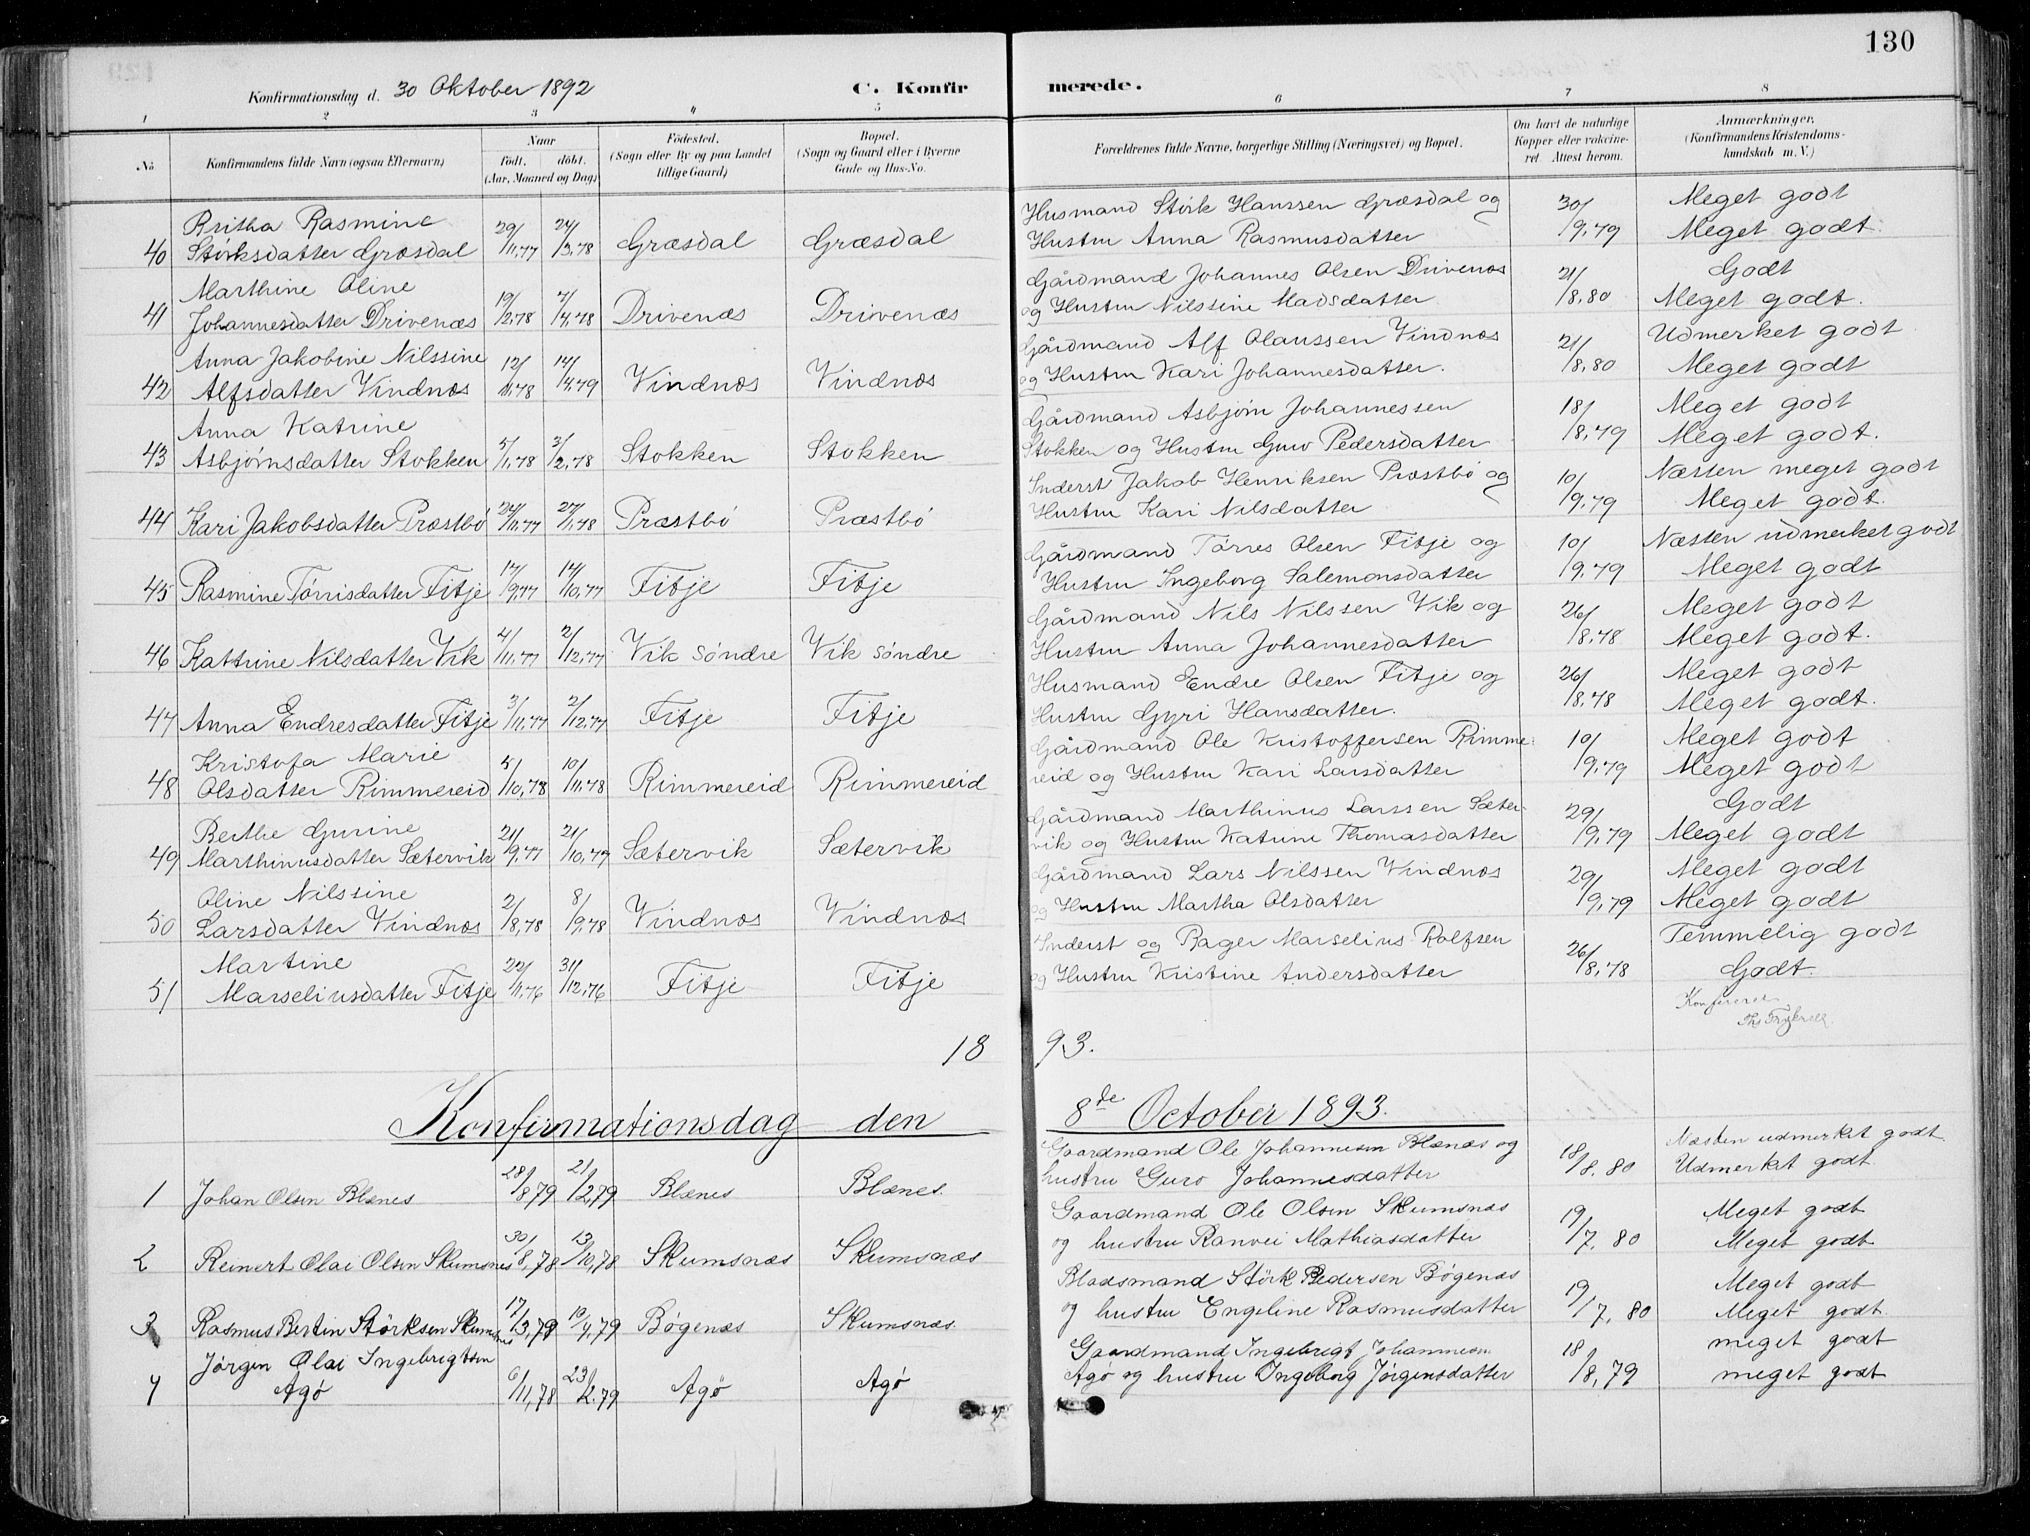 130
Konfirmationsdag d. 30 Oktober 1892
C. Konfirmerede.
1 2 3 4 5 6 7 8
No
Konfirmandens fulde Navn (ogsaa Efternavn)
Naar
født. døbt.
(Aar, Maaned og Dag)
Fødested.
(Sogn eller By og paa Landet
tillige Gaard)
Bopæl.
(Sogn og Gaard eller i Byerne
Gade og Hus-No.
Forældrenes fulde Navne, borgerlige Stilling (Næringsvei) og Bopæl.
Om havt de naturlige
Kopper eller vakcine-
ret. Attest herom.
Anmærkninger.
(Konfirmandens Kristendoms-
kundskab m. V.)
Britha Rasmine Husmand Störk Hanssen Græsdal og 30/ Meget godt
40 Störksdatter Græsdal 29/11,77 24/3,78 Græsdal Græsdal Hustru Anna Rasmusdatter 9,79 Meget godt.
Marthine Oline Gårdmand Johannes Olsen Drivenæs 21/ Godt
41 Johannesdatter Drivenæs 19/2,78 7/4,78 Drivenæs Drivenæs og Hustru Nilssine Madsdatter 8,80 Meget godt.
Anna Jakobine Nilssine Gårdmand Alf Olaussen Vindnæs 21/ Udmerket godt
42 Alfsdatter Vindnæs 12/11,78 14/4,79 Vindnæs Vindnæs og Hustru Kari Johannesdatter. 8,80 Meget godt
Anna Katrine Gårdmand Asbjørn Johannessen 18/ Meget godt
43 Asbjørnsdatter Stokken 5/1,78 3/2,78 Stokken Stokken Stokken og Hustru Guro Pedersdatter 8,79 Meget godt.
Inderst Jakob Henriksen Præstbö og 10/ Næsten meget godt
44 Kari Jakobsdatter Præstbö 24/11,77 27/1,78 Præstbö Præstbö Hustru Kari Nilsdatter 9,79 Meget godt.
Gårdmand Törres Olsen Fitje og 10/ Næsten udmerket godt
45 Rasmine Törrisdatter Fitje 17/9,77 14/10,77 Fitje Fitje Hustru Ingeborg Salemonsdatter 9,79 Meget godt
Gårdmand Nils Nilssen Vik og 26/ Meget godt
46 Kattrine Nilsdatter Vik 4/11,77 2/12,77 Vik söndre Vik söndre Hustru Anna Johannesdatter 8,78 Meget godt.
Husmand Endre Olsen Fitje og 26/ Meget godt
47 Anna Endresdatter Fitje 3/11,77 2/12,77 Fitje Fitje Hustru Gyri Hansdatter. 8,78 Meget godt.
Kristofa Marie Gårdmand Ole Kristoffersen Rimme- 10/ Meget godt
48 Olsdatter Rimmereid 5/10,78 10/11,78 Rimmereid Rimmereid reid og Hustru Kari Larsdatter 9,79 Meget godt
Berthe Gurine Gårdmand Marthinus Larssen Sæter- 29/ Godt
49 Marthinusdatter Sætervik 21/9,77 21/10,77 Sætervik Sætervik vik og Hustru Katrine Thomasdatter 9,79 Meget godt
Oline Nilssine Gårdmand Lars Nilssen Vindnæs 29/ Meget godt
50 Larsdatter Vindnæs 2/8,78 8/9,78 Vindnæs Vindnæs og Hustru Martha Olsdatter 9,79 Meget godt
Martine Inderst og Bager Marselius Rolfsen 26/ Temmelig godt
51 Marseliusdatter Fitje 22/11,76 31/12,76 Fitje Fitje og Hustru Kristine Andersdatter 8,78 Godt.
Konfereret
1893.
Konfirmationsdag den 8de October 1893.
Gaardmand Ole Johannesen Blænæs og 18/ Næsten udmerket godt
1 Johan Olsen Blænes 28/8,79 21/12,79 Blænes Blænes. hustru Guro Johannesdatter 8. 80 Udmerket godt.
Gaardmand Ole Olsen Skumsnæs 19/ Meget godt
2 Reinert Olai Olsen Skumsnes 30/8,78 13/10,78 Skumsnæs Skumsnæs og hustru Ranvei Mathiasdatter 7, 80 Meget godt
Pladsmand Störk Pedersen Bögenæs 19/ Meget godt
3 Rasmus Bertin Störksen Skumsnes 17/3,79 10/4,79 Bögenæs Skumsnæs. og hustru Engeline Rasmusdatter 7, 80 Meget godt.
Jørgen Olai Ingebrigtsen Gaardmand Ingebrigt Johannesen 18/ meget godt
4 Agö 6/11,78 23/2.79 Agö Agö Agö og hustru Ingeborg Jørgensdatter 8,79 meget godt